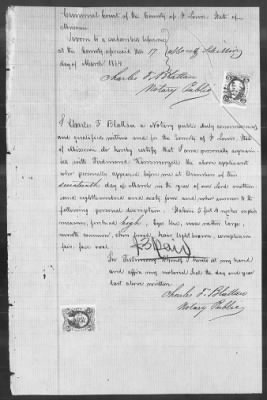 Criminal Court of the County of St Louis, State of
Missouri
Sworn to & subscribed before me
at the County aforesaid this 17
day of March 1864
Charles F. Blattau
Notary Public
I Charles F. Blattau a Notary public duly commissioned
and qualified within and for the County of St Louis, State
of Missouri do hereby certify that I am personally acquain-
ted with Ferdinand the above applicant
who personally appeared before me at Crumdon of this
seventeenth day of March in the year of our Lord eighteen
and eighthundred and sixty four and who answers to the
following personal description. Stature 5 feet 8 inches english
measure, forehead high, Eyes blue, nose rather large,
mouth common, chin round, hair light brown, complexion
fair, face oval.
$3 Paid
In Testimony Whereof I hereto set my hand
and affix my notarial Seal the day and year
last above written.
Charles F. Blattau
Notary Public